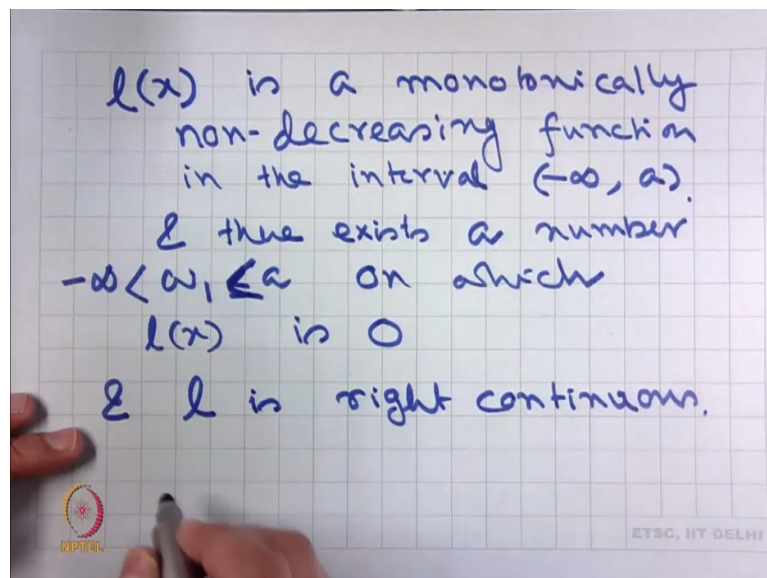 l(x) is a monotonically
non-decreasing function
in the interval (-∞, a).
& there exists a number
-∞ < ω, ≤ a on which
l(x) is 0
& l is right continuous.
NPTEL
ETSC, IIT DELHI